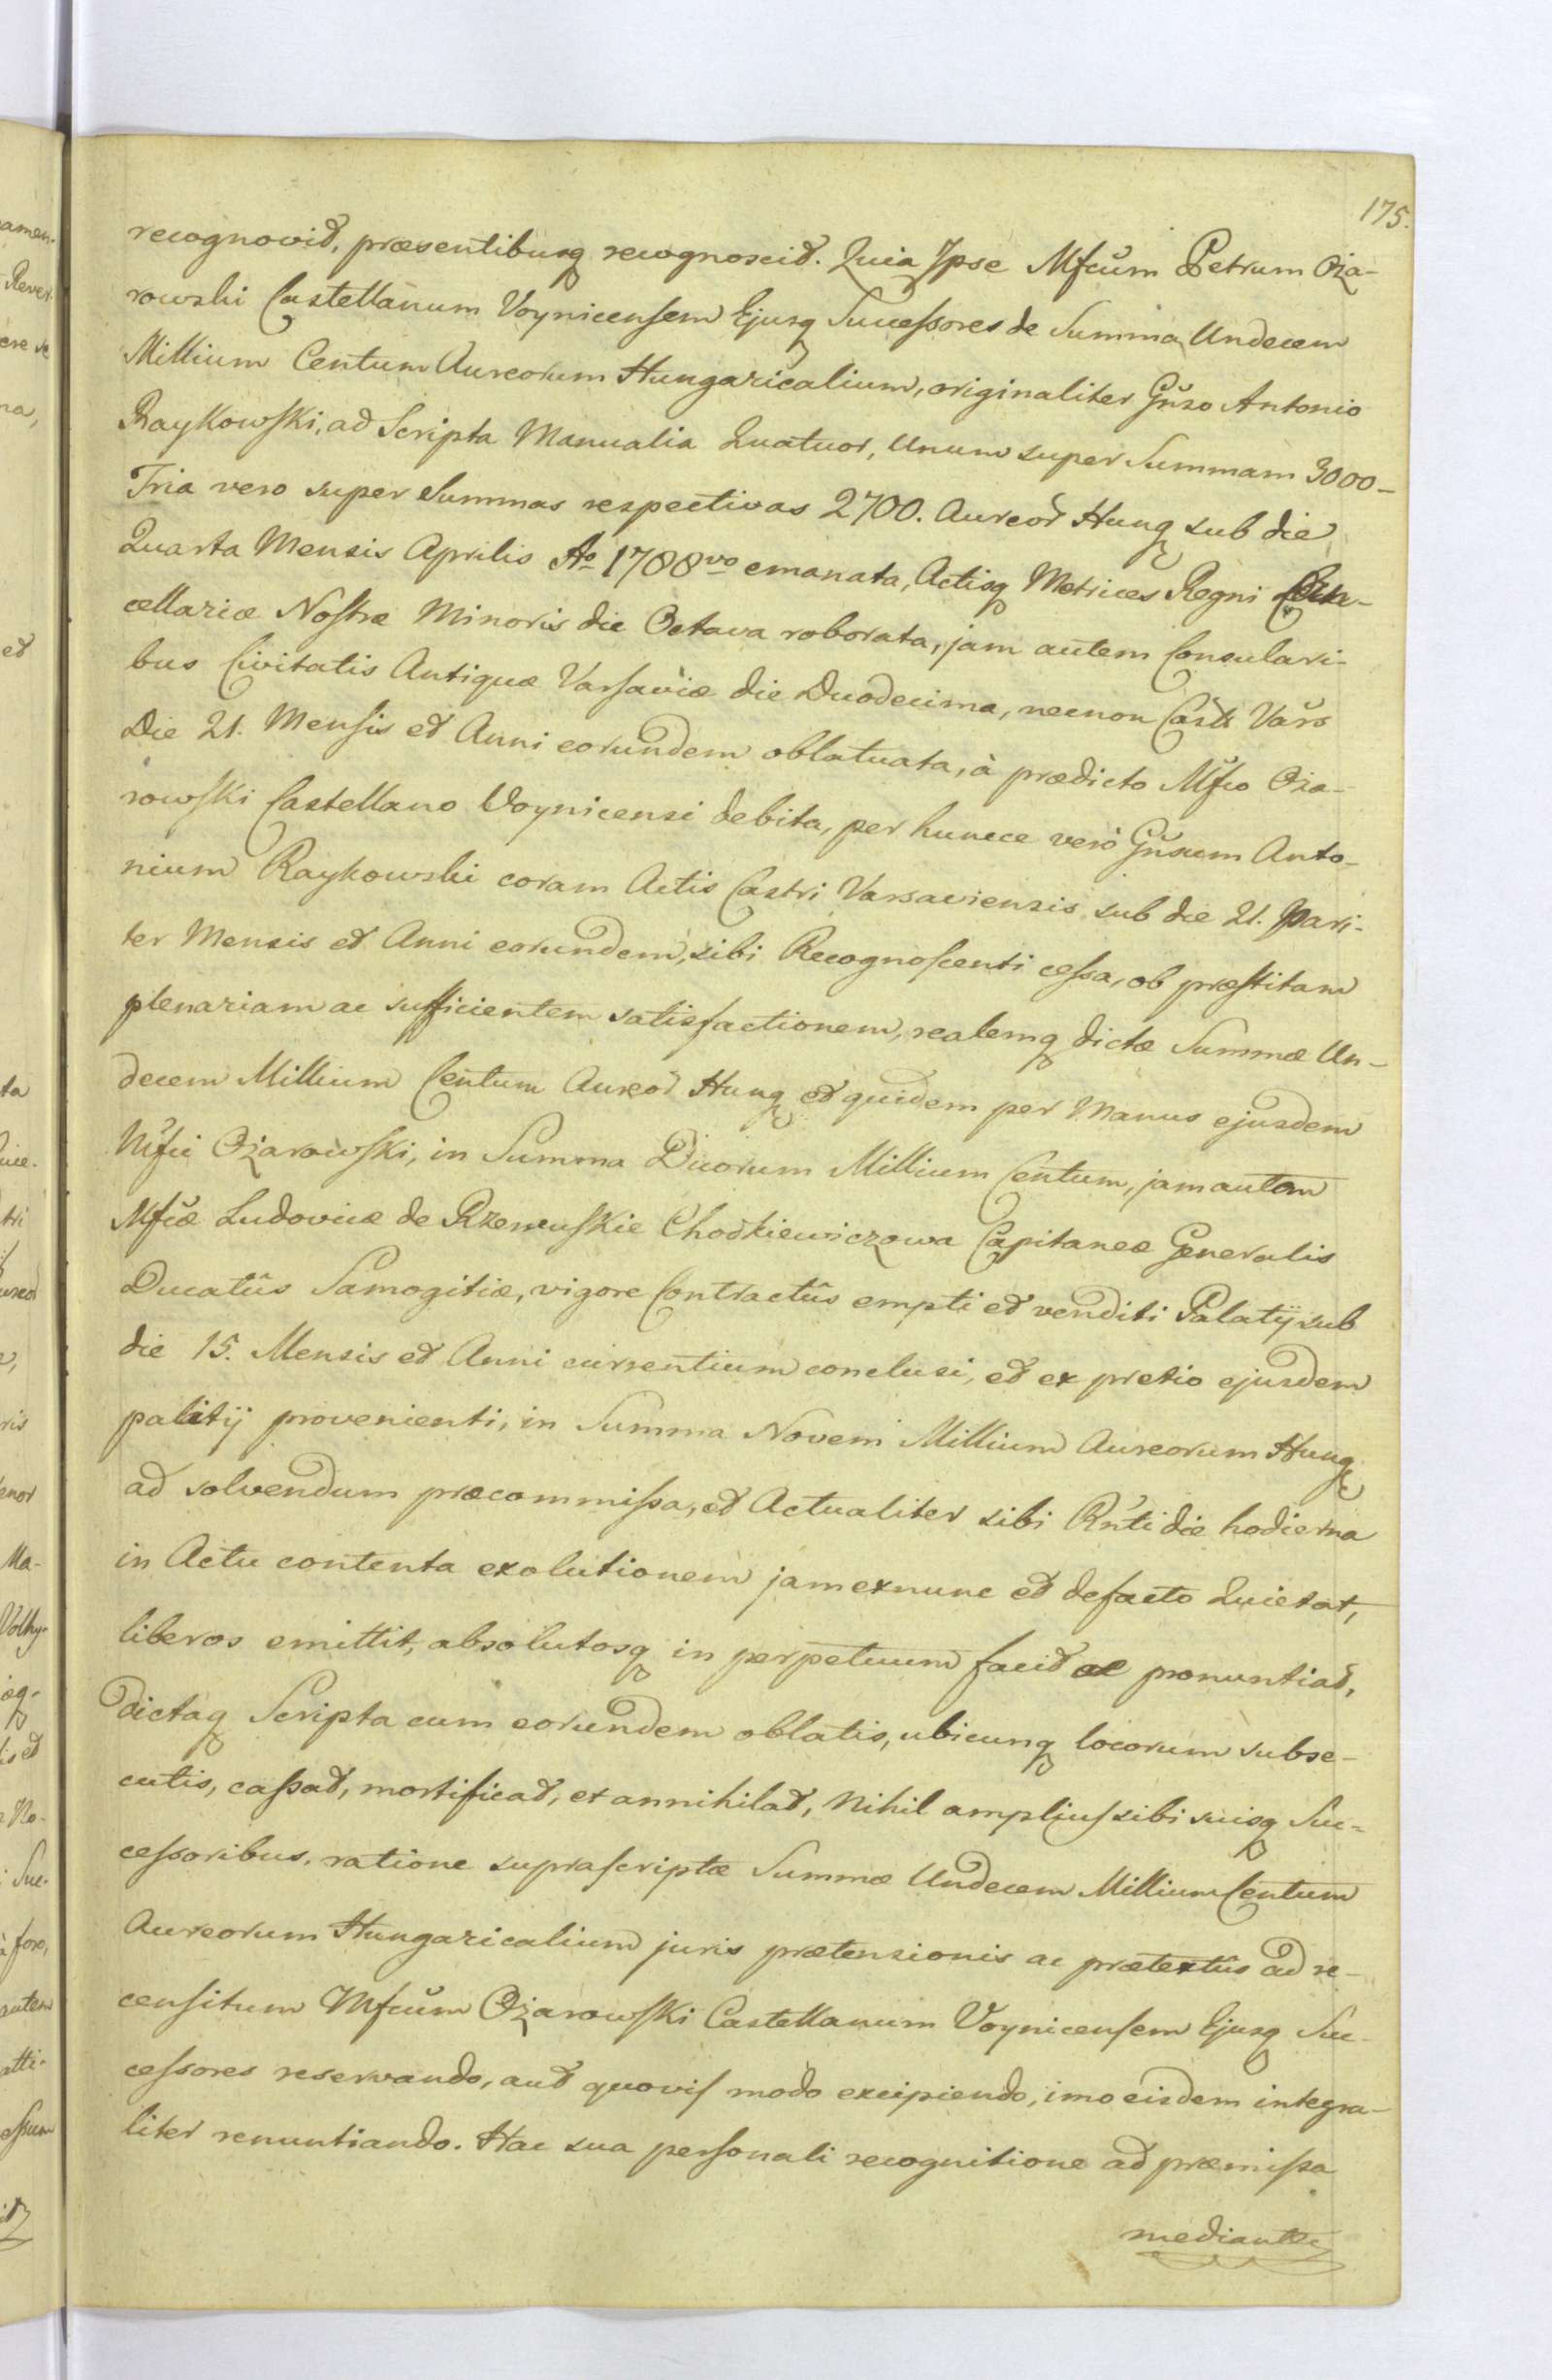 175.
recognovit, præsentibusq recognoscit. Quia Ipse Mfcum Petrum Oża-
rowski Castellanum Voynicensem Ejusq Successores de Summa Undecem
Millium Centum Aureorum Hungaricalium, originaliter Gnso Antonio
Raykowski, ad Scripta Manualia Quatuor, Unum super Summam 3000-
Tria vero super Summas respectivas 2700. Aureor Hung sub die
Quarta Mensis Aprilis Ao 1788vo emanata, Actisq Metrices Regni Can-
cellariæ Nostræ Minoris die Octava roborata, jam autem Consulari-
bus Civitatis Antiquæ Varsaviæ die Duodecima, necnon Castr Vars
Die 21. Mensis et Anni eorundem oblatuata, à prædicto Mfco Oża-
rowski Castellano Voynicensi debita, per hunce verò Gnsum Anto-
nium Raykowski coram Actis Castri Varsaviensis sub die 21. Pari-
ter Mensis et Anni eorundem, sibi Recognoscenti cessa, ob præstitam
plenariam ac sufficientem satisfactionem, realemq dictæ Summæ Un-
decem Millium Centum Aureor Hung et quidem per Manus ejusdem
Mfci Ożarowski, in Summa Duorum Millium Centum, jam autem
Mfcæ Ludovicæ de Rzewuskie Chodkiewiczowa Capitaneæ Generalis
Ducatûs Samogitiæ, vigore Contractûs empti et venditi Palatij sub
die 15. Mensis et Anni currentium conclusi, et ex pretio ejusdem
palatij provenienti, in Summa Novem Millium Aureorum Hung
ad solvendum præcommissa, et Actualiter sibi Rnti die hodierna
in Actu contenta exolutionem jam exnunc et defacto Quietat,
liberos emittit, absolutosq in perpetuum facit ac pronuntiat,
dictaq Scripta cum eorundem oblatis, ubicunq locorum subse-
cutis, cassat, mortificat, et annihilat, Nihil amplius sibi suisq Suc-
cessoribus, ratione suprascriptæ Summæ Undecem Millium Centum
Aureorum Hungaricalium juris prætensionis ac prætextûs ad re-
censitum Mfcum Ożarowski Castellanum Voynicensem Ejusq Suc-
cessores reservando, aut quovis modo excipiendo, imo eisdem integra-
liter renuntiando. Hac sua personali recognitione ad præmissa
mediante